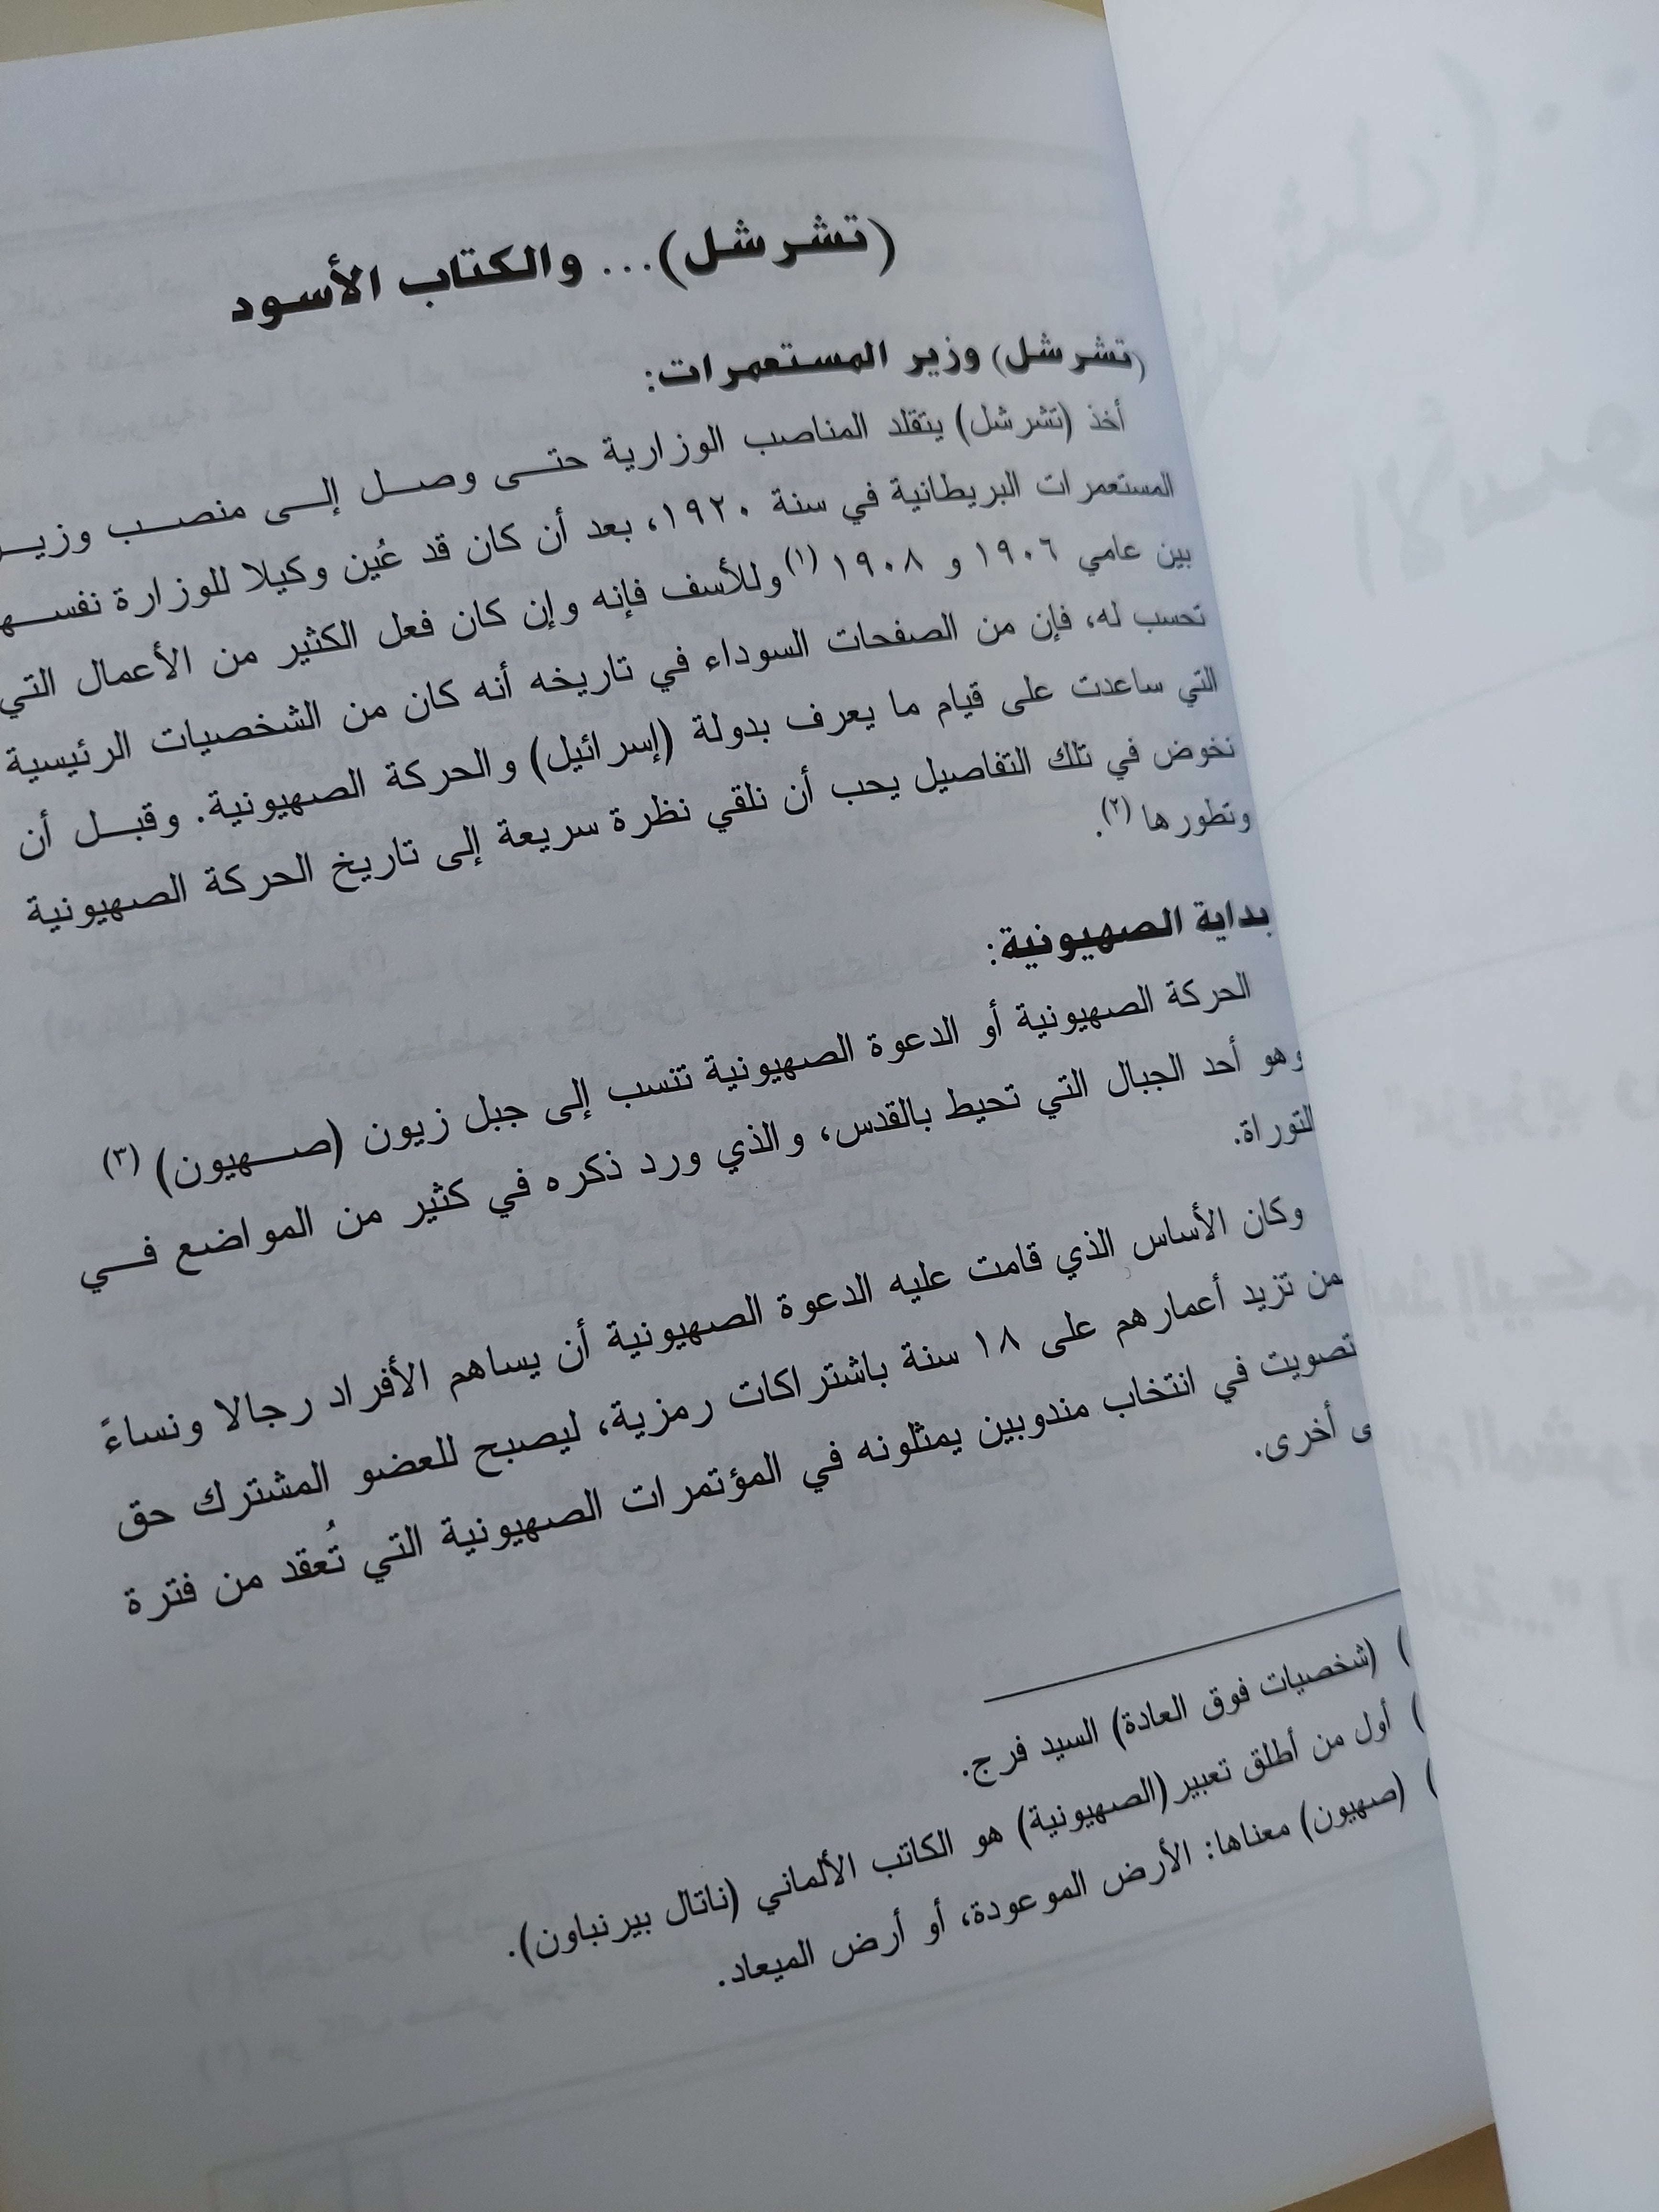 (تشرشل)... والكتاب الأسود
(تشرشل) وزير المستعمرات:
أخذ (تشرشل) يتقلد المناصب الوزارية حتى وصل إلى منصب وزير
المستعمرات البريطانية في سنة ١٩٢٠، بعد أن كان قد عُين وكيلا للوزارة نفسه
بين عامي ١٩٠٦ و ١٩٠٨ (١) وللأسف فإنه وإن كان فعل الكثير من الأعمال التي
تحسب له، فإن من الصفحات السوداء في تاريخه أنه كان من الشخصيات الرئيسية
التي ساعدت على قيام ما يعرف بدولة (إسرائيل) والحركة الصهيونية. وقبل أن
نخوض في تلك التفاصيل يحب أن نلقي نظرة سريعة إلى تاريخ الحركة الصهيونية
وتطورها (٢).
بداية الصهيونية:
الحركة الصهيونية أو الدعوة الصهيونية تنسب إلى جبل زيون (صهيون) (٣)
وهو أحد الجبال التي تحيط بالقدس، والذي ورد ذكره في كثير من المواضع في
التوراة.
وكان الأساس الذي قامت عليه الدعوة الصهيونية أن يساهم الأفراد رجالا ونساءً
من تزيد أعمارهم على ١٨ سنة باشتراكات رمزية، ليصبح للعضو المشترك حق
تصويت في انتخاب مندوبين يمثلونه في المؤتمرات الصهيونية التي تُعقد من فترة
ى أخرى.
) (شخصيات فوق العادة) السيد فرج.
) أول من أطلق تعبير (الصهيونية) هو الكاتب الألماني (ناتال بيرنباون).
) (صهيون) معناها: الأرض الموعودة، أو أرض الميعاد.